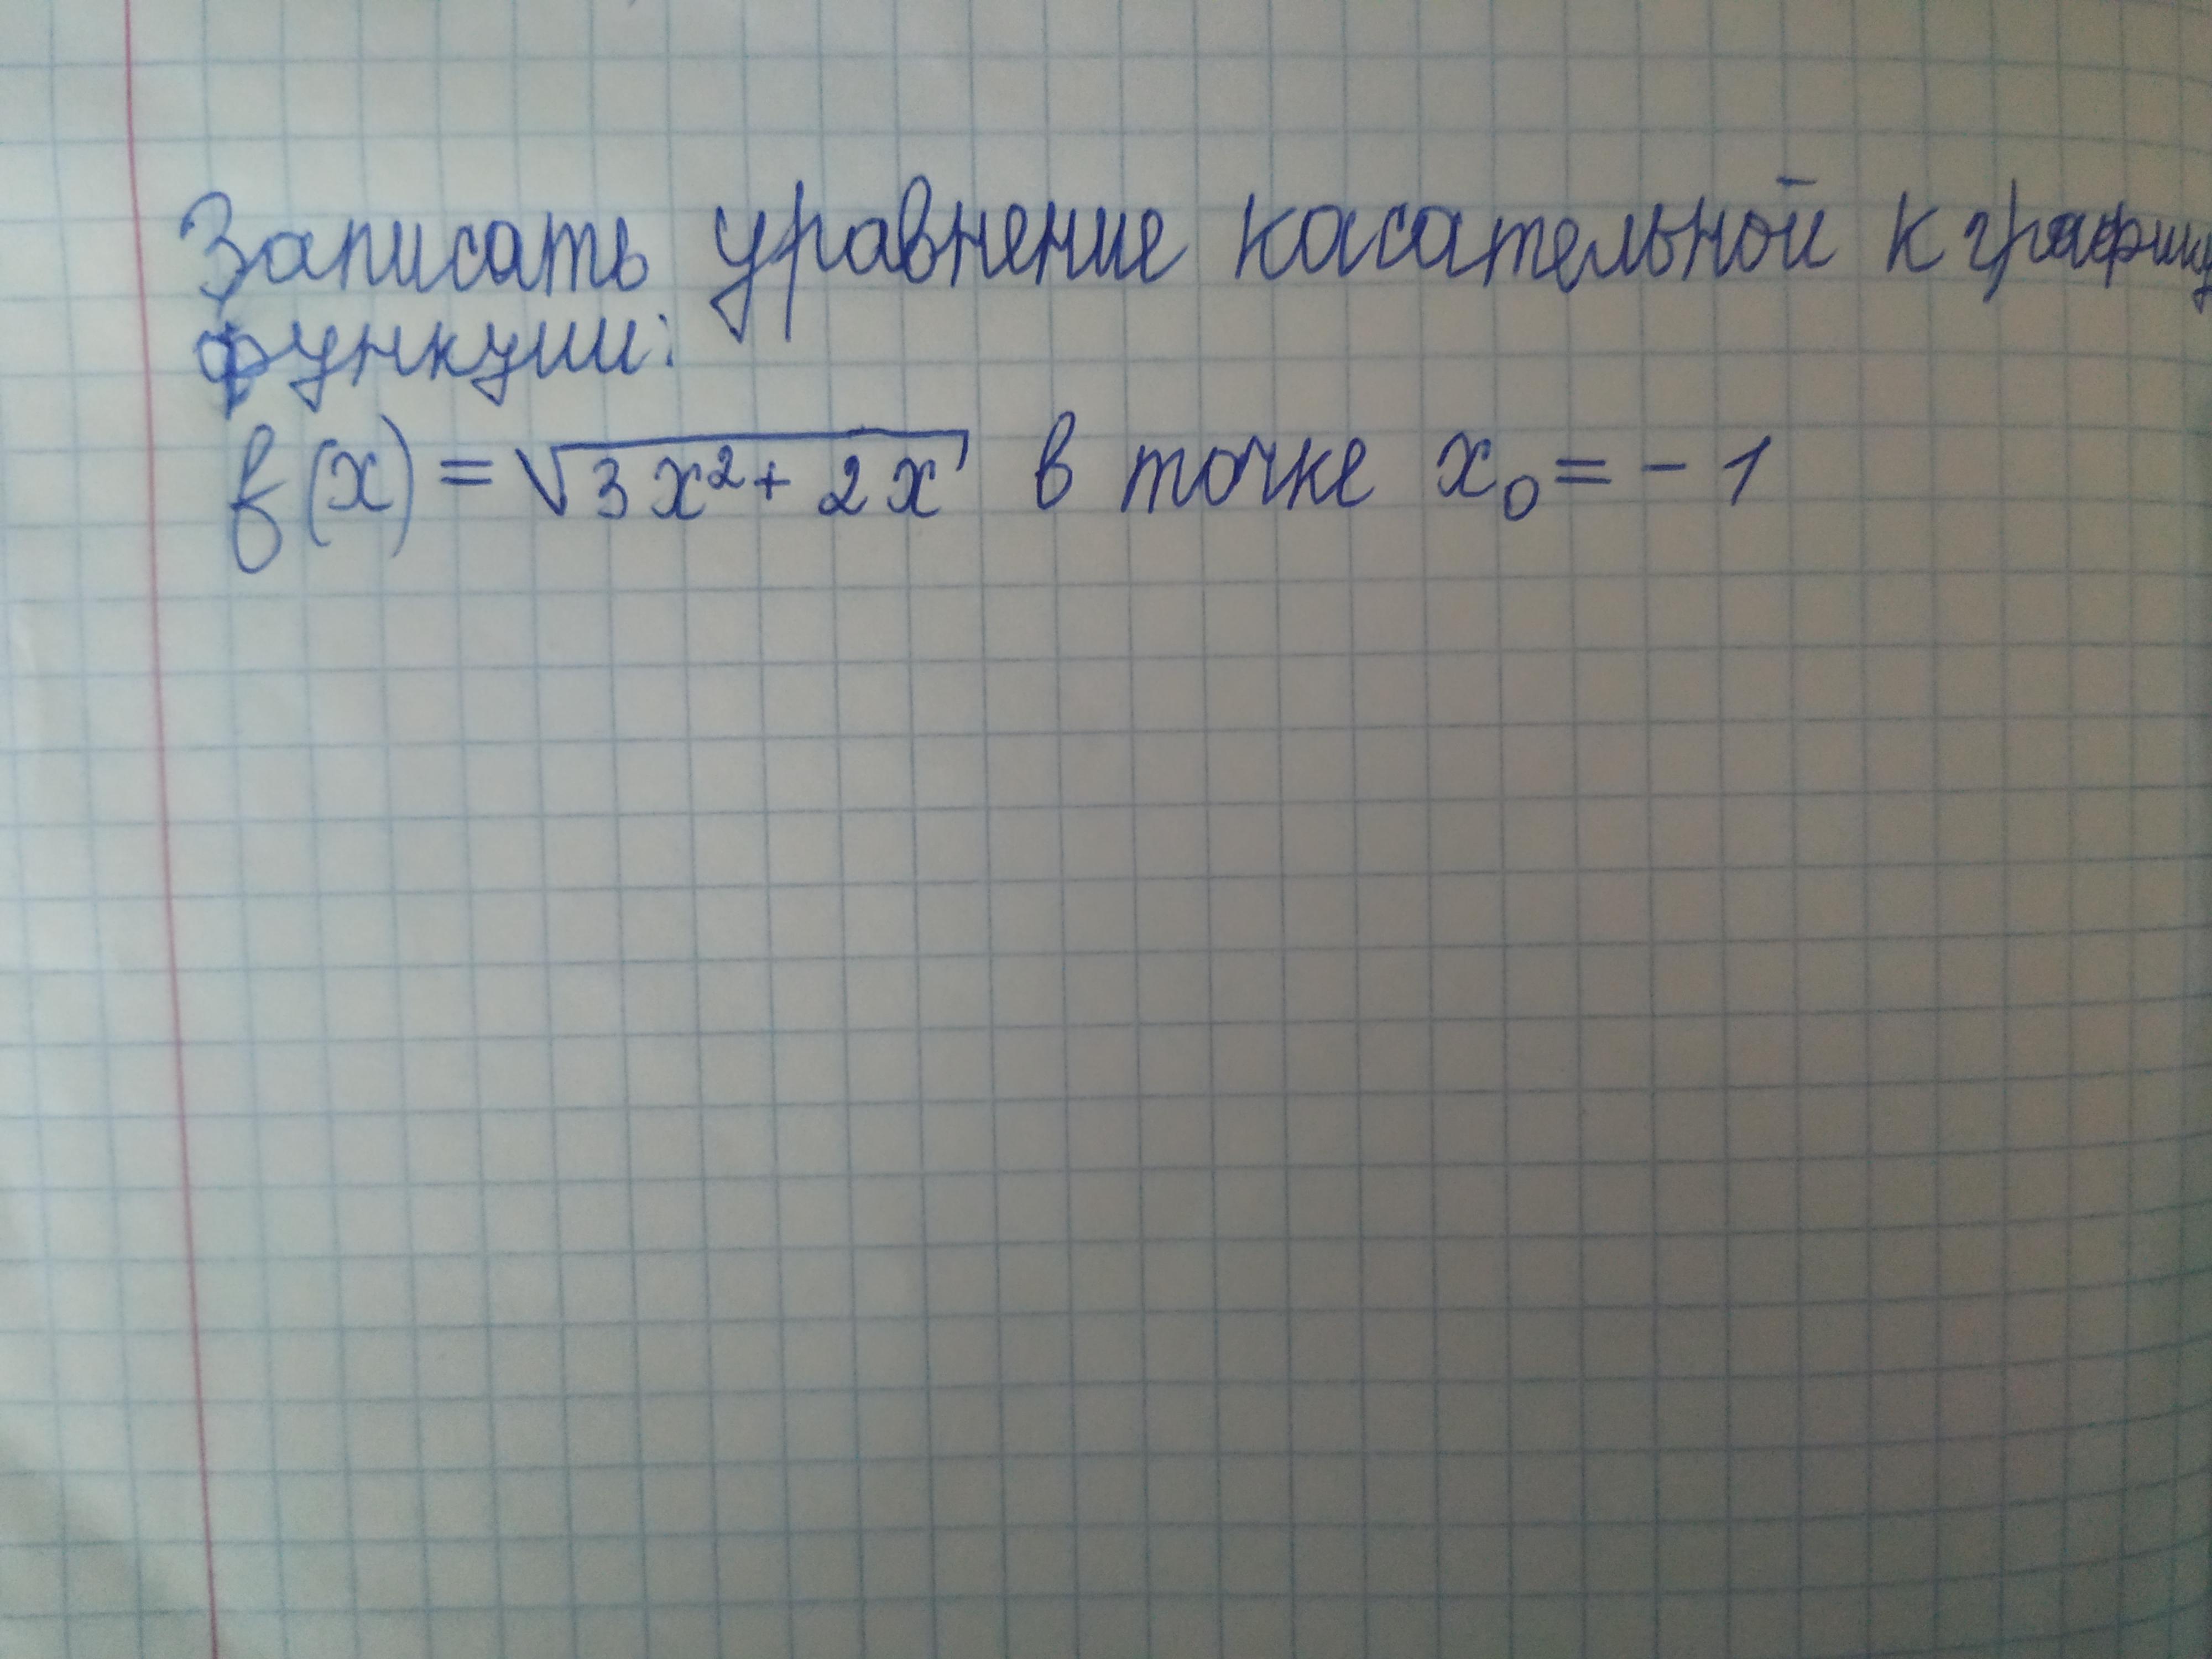 Записать уравнение касательной к графику
функции:
f(x) = √3x²+ 2x в точке x₀ = - 1